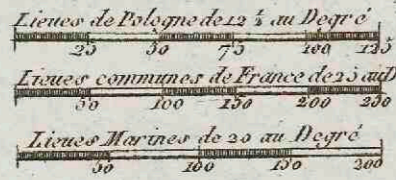 Lieues de Pologne de 12 ½ au Degré
25 50 75 100 125
Lieues communes de France de 25 au D
50 100 150 200 250
Lieues Marines de 20 au Degré
50 100 150 200